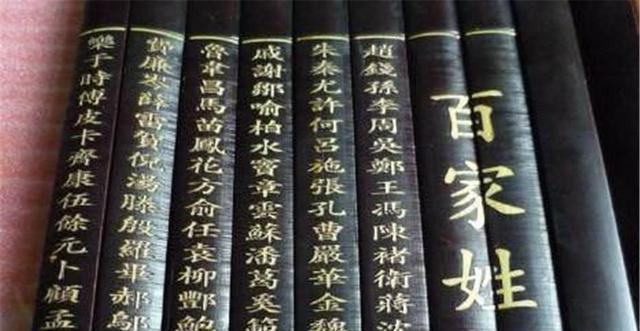 百家姓
趙錢孫李周吳鄭王馮陳褚衛蔣沈
朱秦尤許何呂施張孔曹嚴華金魏
戚謝鄒喻柏水竇章雲蘇潘葛奚
魯韋昌馬苗鳳花方俞任袁柳酆鮑
費廉岑薛雷賀倪湯滕殷羅畢郝鄔
樂于時傅皮卞齊康伍餘元卜顧孟